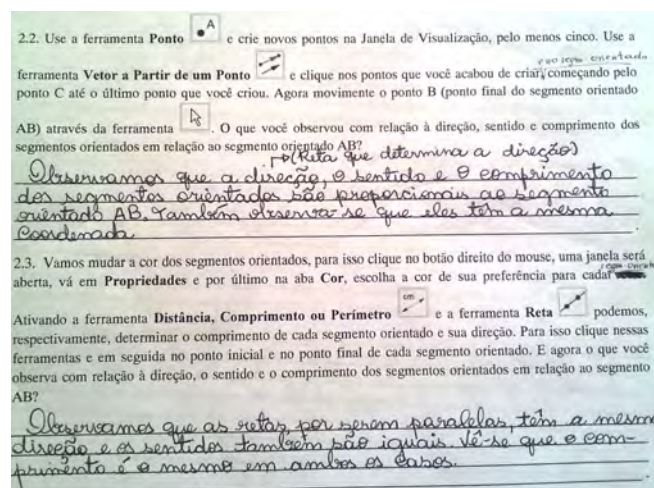 A
2.2. Use a ferramenta Ponto e crie novos pontos na Janela de Visualização, pelo menos cinco. Use a
eao segm. orientado
ferramenta Vetor a Partir de um Ponto e clique nos pontos que você acabou de criar, começando pelo
ponto C até o último ponto que você criou. Agora movimente o ponto B (ponto final do segmento orientado
AB) através da ferramenta . O que você observou com relação à direção, sentido e comprimento dos
segmentos orientados em relação ao segmento orientado AB?
(Reta que determina a direção)
Observamos que a direção, o sentido e o comprimento
dos segmentos orientados são proporcionais ao segmento
orientado AB. Também observa-se que eles têm a mesma
Coordenada.
2.3. Vamos mudar a cor dos segmentos orientados, para isso clique no botão direito do mouse, uma janela será
aberta, vá em Propriedades e por último na aba Cor, escolha a cor de sua preferência para cada
cm
Ativando a ferramenta Distância, Comprimento ou Perímetro e a ferramenta Reta podemos,
respectivamente, determinar o comprimento de cada segmento orientado e sua direção. Para isso clique nessas
ferramentas e em seguida no ponto inicial e no ponto final de cada segmento orientado. E agora o que você
observa com relação à direção, o sentido e o comprimento dos segmentos orientados em relação ao segmento
AB?
Observamos que as retas, por serem paralelas, têm a mesm
direção e os sentidos também são iguais. Vê-se que o com-
primento é o mesmo em ambos os casos.